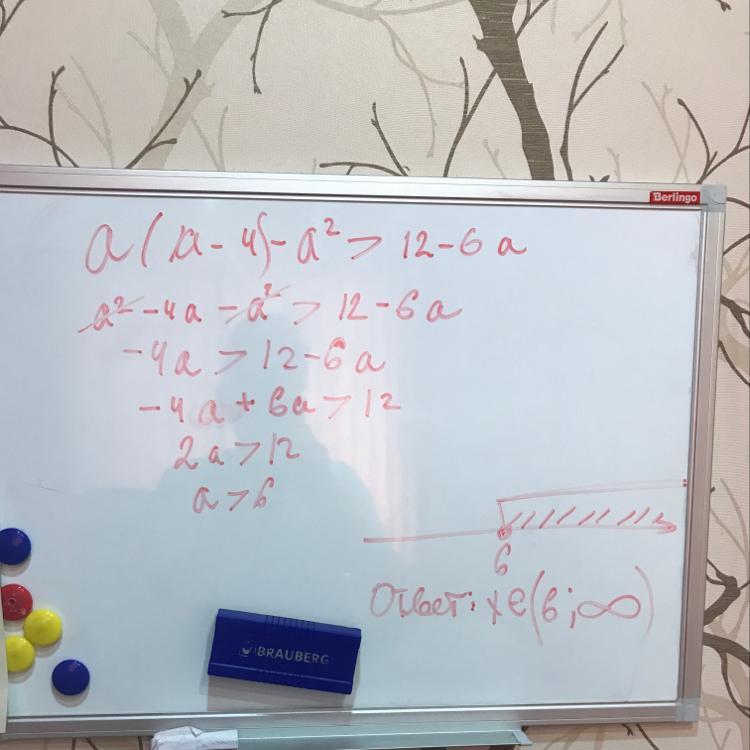 Berlingo
a(a-4)-a²>12-6a
a²-4a-a²>12-6a
-4a>12-6a
-4a+6a>12
2a>12
a>6
6
Ответ: x∈(6;∞)
BRAUBERG